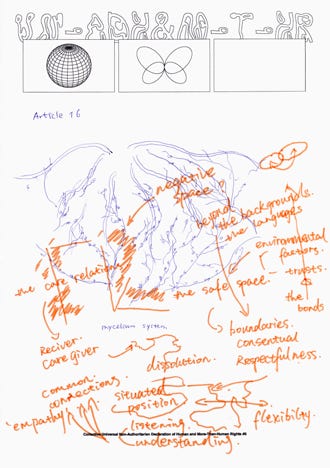 Article 16
negative
space?
beyond
the backgrounds.
the languages
environmental
factors.
the care relation
the safe space
trusts.
the
bonds
mycelium system.
Reciver.
Care giver
boundaries.
consentual
Respectfulness.
dissolution.
common
connections.
situated
position
'empathy'
listening
flexibilty.
Universal Non-Authoritarian Declaration of Human and More-Than-Human Rights
understanding.